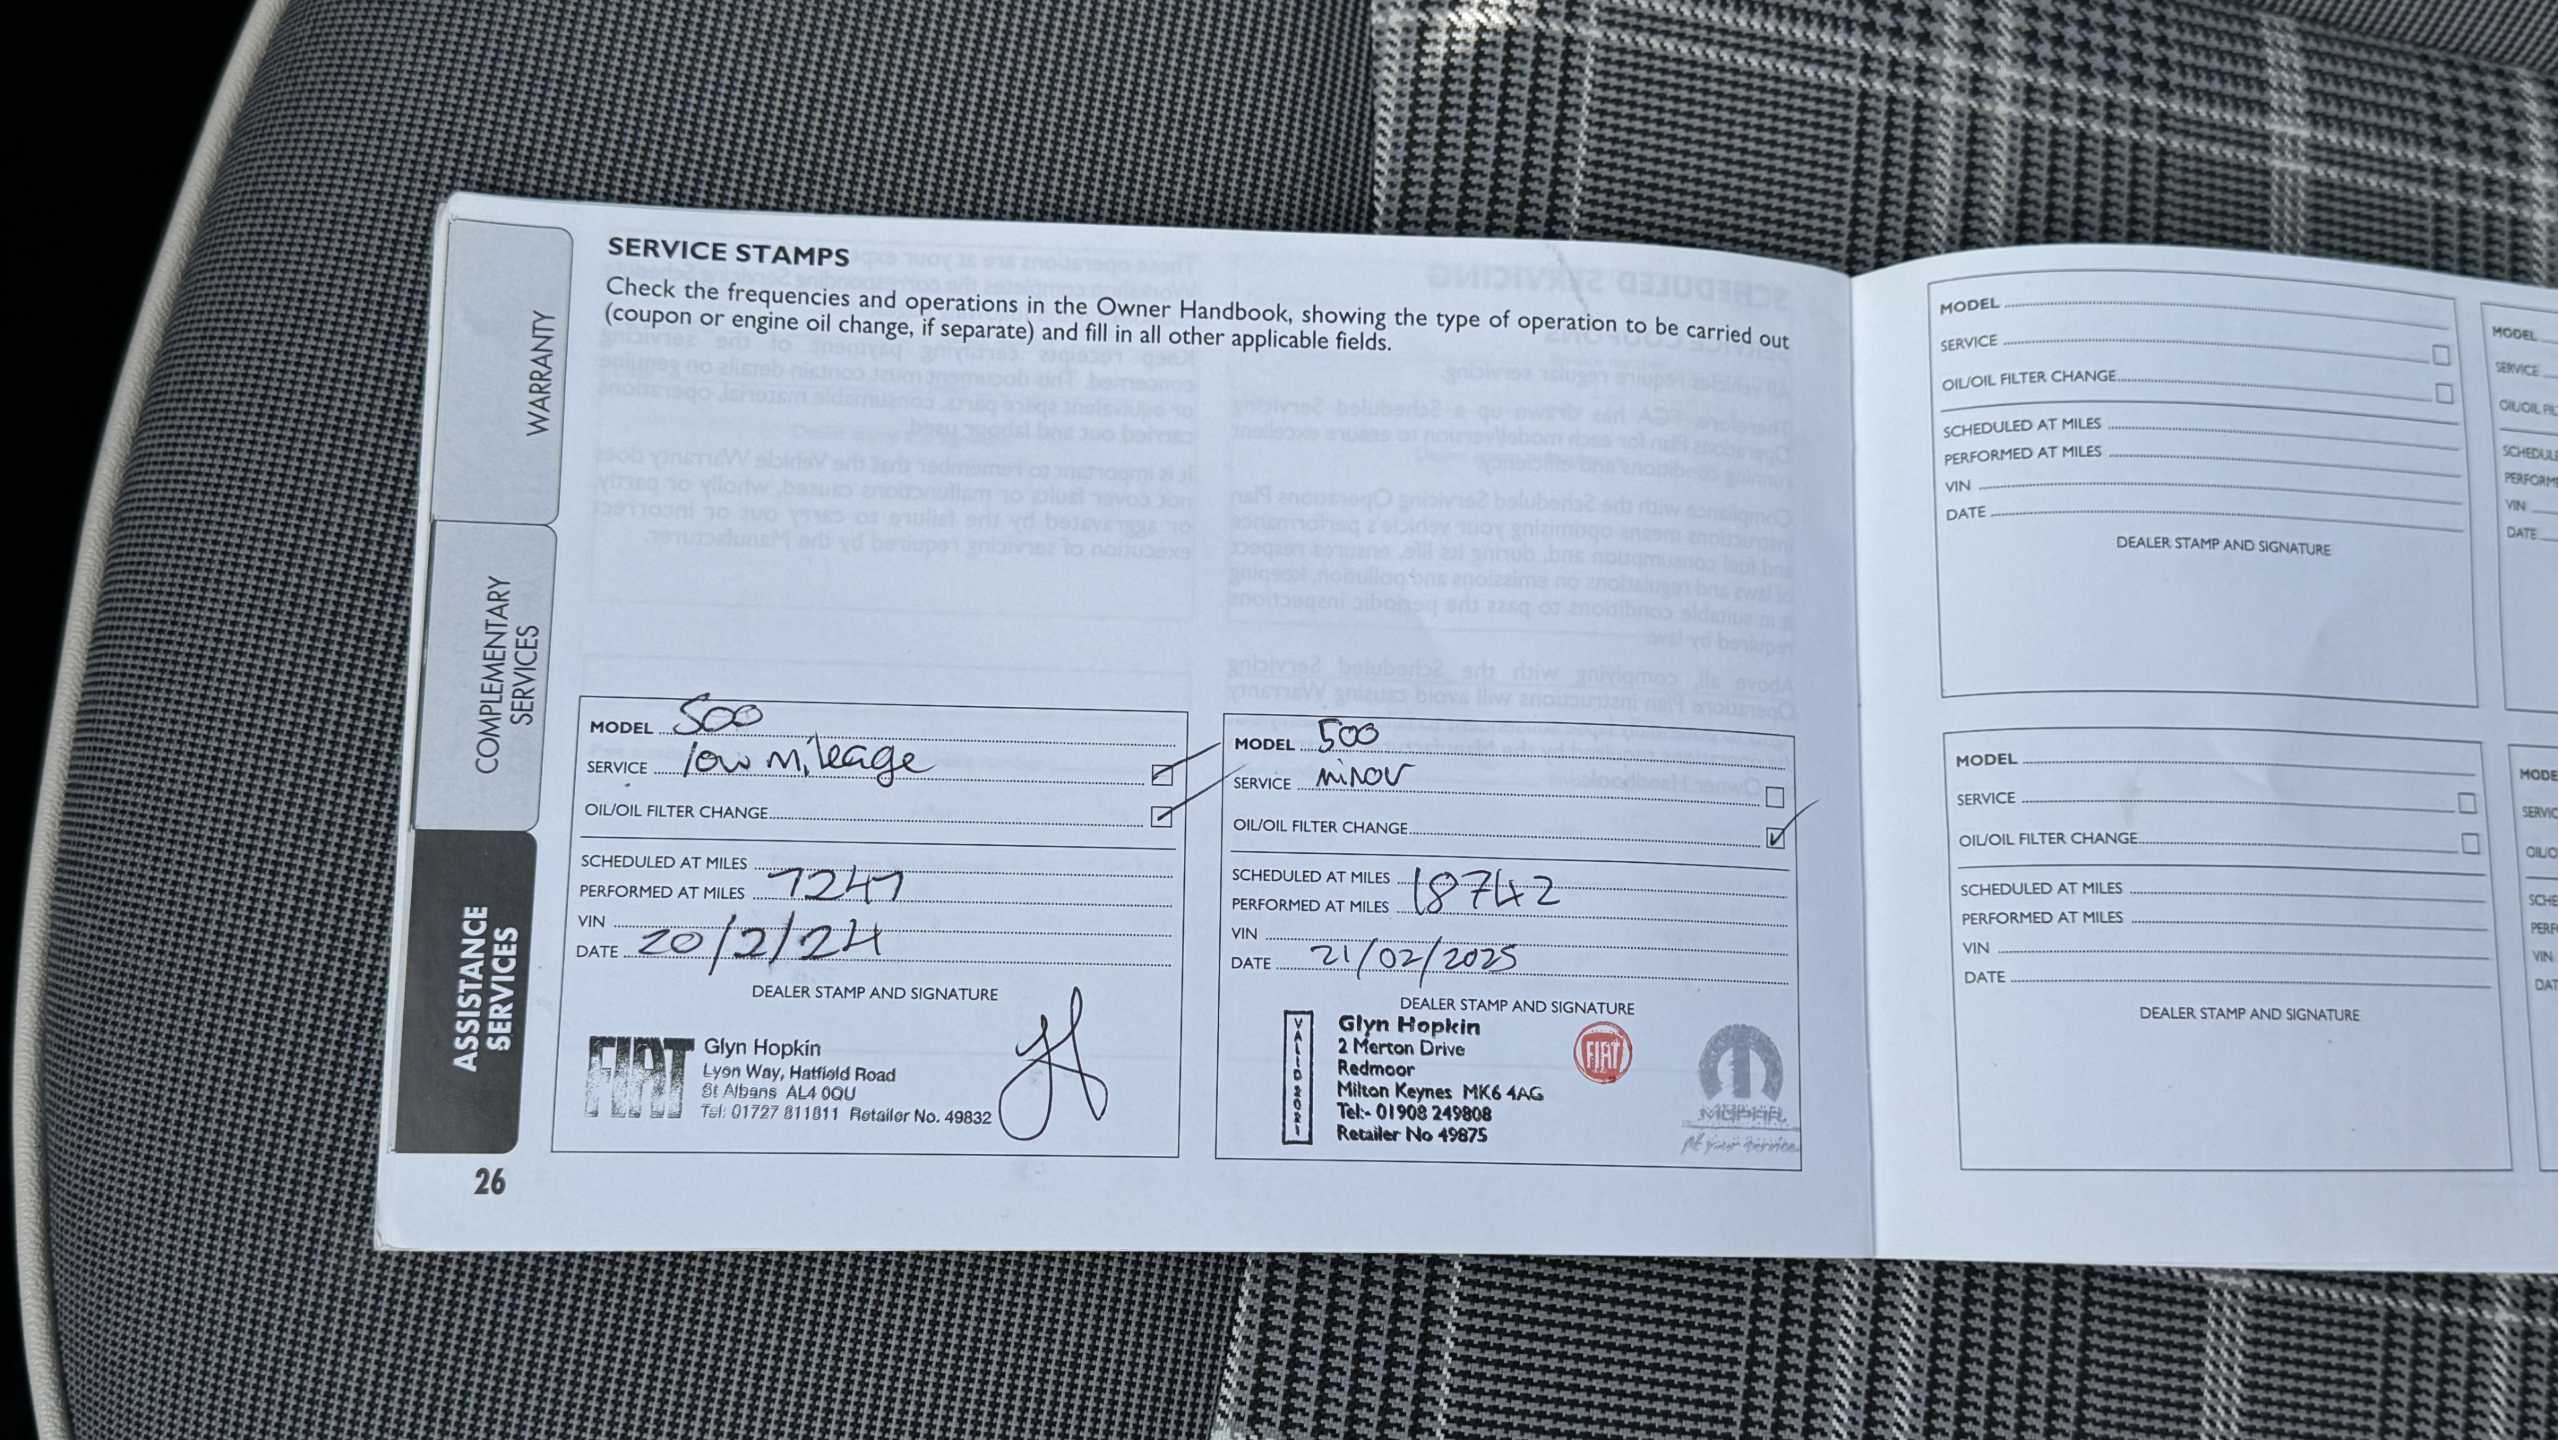 SERVICE STAMPS
Check the frequencies and operations in the Owner Handbook, showing the type of operation to be carried out
(coupon or engine oil change, if separate) and fill in all other applicable fields.
WARRANTY
COMPLEMENTARY
SERVICES
ASSISTANCE
SERVICES
26
MODEL 500
SERVICE low mileage
OIL/OIL FILTER CHANGE
SCHEDULED AT MILES
PERFORMED AT MILES 7247
VIN
DATE 20/2/24
DEALER STAMP AND SIGNATURE
FIAT
Glyn Hopkin
Lyon Way, Hatfield Road
St Albans AL4 0QU
Tel: 01727 811811 Retailer No. 49832
MODEL 500
SERVICE minor
OIL/OIL FILTER CHANGE
SCHEDULED AT MILES
PERFORMED AT MILES 18742
VIN
DATE 21/02/2025
DEALER STAMP AND SIGNATURE
VALID 2021
Glyn Hopkin
2 Merton Drive
Redmoor
Milton Keynes MK6 4AG
Tel:- 01908 249808
Retailer No 49875
FIAT
MOPAR
MODEL
SERVICE
OIL/OIL FILTER CHANGE
SCHEDULED AT MILES
PERFORMED AT MILES
VIN
DATE
DEALER STAMP AND SIGNATURE
MODEL
SERVICE
OIL/OIL FILTER CHANGE
SCHEDULED AT MILES
PERFORMED AT MILES
VIN
DATE
DEALER STAMP AND SIGNATURE
MODEL
SERVICE
VIN
DATE
VIN